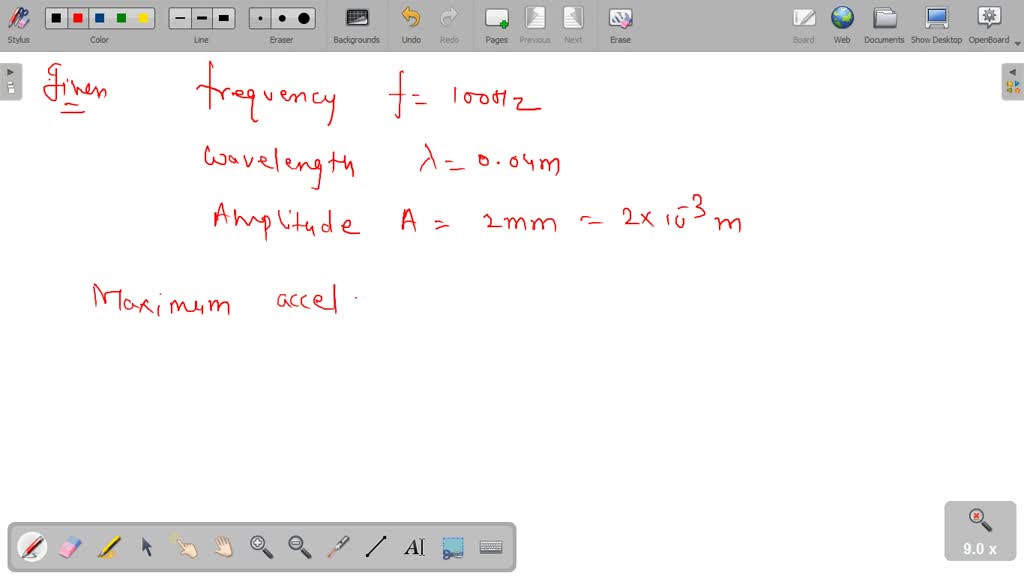 Stylus Color Line Eraser Backgrounds Undo Redo Pages Previous Next Erase Board Web Documents Show Desktop OpenBoard
Given frequency f = 100Hz
Wavelength λ = 0.04m
Amplitude A = 2mm = 2×10⁻³ m
Maximum accel
9.0 x